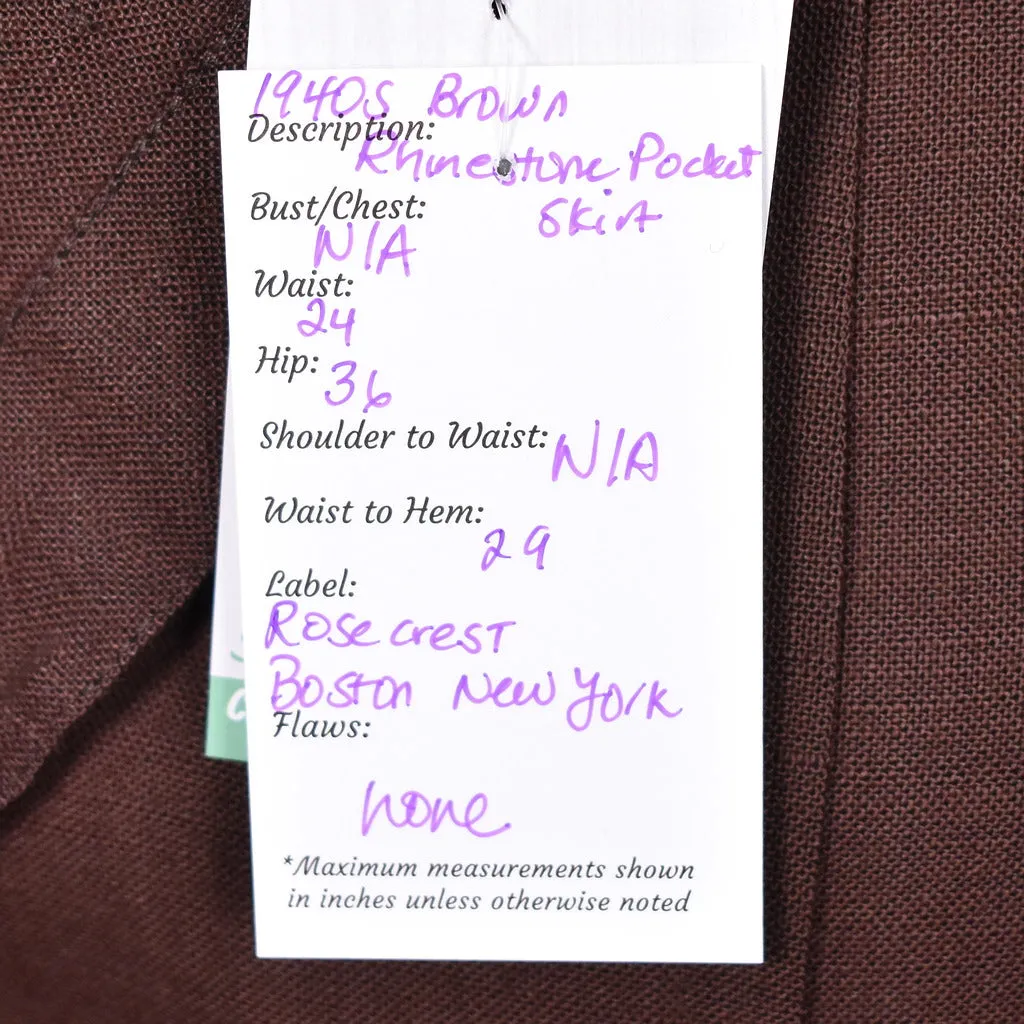 1940s Brown
Description:
Rhinestone Pocket
Bust/Chest:
Skirt
N/A
Waist:
24
Hip:
36
Shoulder to Waist:
N/A
Waist to Hem:
29
Label:
Rosecrest
Boston New York
Flaws:
none
*Maximum measurements shown
in inches unless otherwise noted